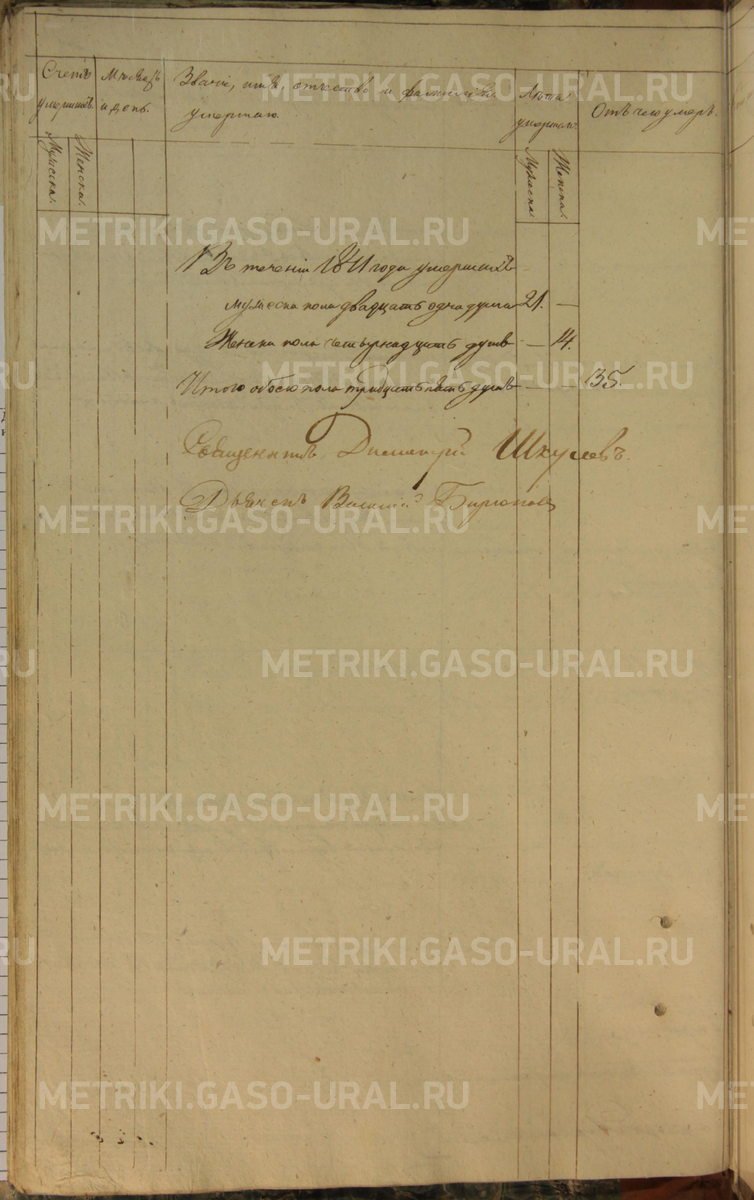 Счетъ
умершихъ.
Мѣсяцъ
и день.
Званіе, имя, отчество и фамилія
умершаго.
Лѣта
умершаго.
Отъ чего умеръ.
Мужеска.
Женска.
Мужеска.
Женска.
Въ теченіи 1841 года умершихъ
мужеска пола двадцать одна душа 21. —
Женска пола четырнадцать душъ — 14.
Итого обоего пола тридцать пять душъ — — 35.
Священникъ Димитрій Шкулевъ.
Дьяконъ Василій Бирюковъ
METRIKI.GASO-URAL.RU